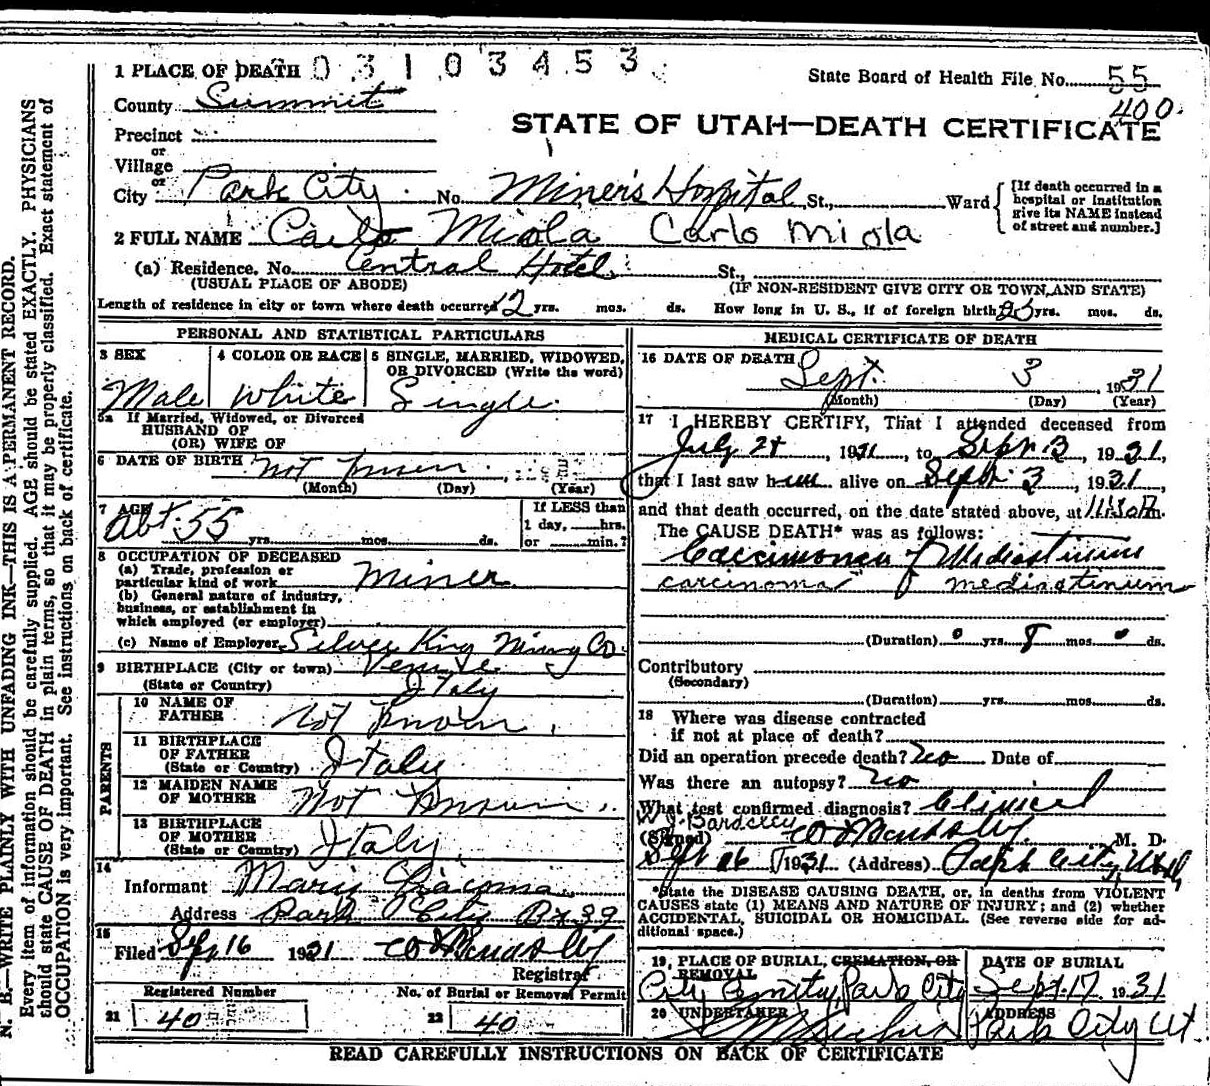 1 PLACE OF DEATH 0 3 1 0 3 4 5 3
State Board of Health File No. 55
400
County Summit
STATE OF UTAH—DEATH CERTIFICATE
Precinct
or
Village
or
City Park City No. Miner's Hospital St., Ward
[If death occurred in a hospital or institution give its NAME instead of street and number.]
2 FULL NAME Carlo Miola Carlo Miola
(a) Residence. No. Central Hotel St.,
(USUAL PLACE OF ABODE) (IF NON-RESIDENT GIVE CITY OR TOWN, AND STATE)
Length of residence in city or town where death occurred 12 yrs. mos. ds. How long in U. S., if of foreign birth 25 yrs. mos. ds.
PERSONAL AND STATISTICAL PARTICULARS
3 SEX Male
4 COLOR OR RACE White
5 SINGLE, MARRIED, WIDOWED, OR DIVORCED (Write the word) Single
5a If Married, Widowed, or Divorced
HUSBAND OF
(OR) WIFE OF
6 DATE OF BIRTH Not known
(Month) (Day) (Year)
7 AGE Abt. 55 yrs. mos. ds.
If LESS than
1 day, hrs.
or min.?
8 OCCUPATION OF DECEASED
(a) Trade, profession or
particular kind of work Miner
(b) General nature of industry,
business, or establishment in
which employed (or employer)
(c) Name of Employer Silver King Mining Co.
9 BIRTHPLACE (City or town) Venice
(State or Country) Italy
PARENTS
10 NAME OF
FATHER Not known
11 BIRTHPLACE
OF FATHER
(State or Country) Italy
12 MAIDEN NAME
OF MOTHER Not known
13 BIRTHPLACE
OF MOTHER
(State or Country) Italy
14
Informant Giacoma
Address Park City Bx 89
15
Filed Sep. 16 1931
Registrar
Registered Number
21 40
No. of Burial or Removal Permit
22 40
MEDICAL CERTIFICATE OF DEATH
16 DATE OF DEATH Sept. 3, 1931
(Month) (Day) (Year)
17 I HEREBY CERTIFY, That I attended deceased from
July 24, 1931, to Sept. 3, 1931,
that I last saw him alive on Sept. 3, 1931,
and that death occurred, on the date stated above, at 11:30 A.m.
The CAUSE DEATH* was as follows:
Carcinoma of Mediastinum
carcinoma of mediastinum
(Duration) 0 yrs. 8 mos. 0 ds.
Contributory
(Secondary)
(Duration) yrs. mos. ds.
18 Where was disease contracted
if not at place of death?
Did an operation precede death? no Date of
Was there an autopsy? no
What test confirmed diagnosis? Clinical
W J. Bardsley
(Signed) M. D.
Sept 16 1931 (Address) Park City, Utah
*State the DISEASE CAUSING DEATH, or, in deaths from VIOLENT
CAUSES state (1) MEANS AND NATURE OF INJURY; and (2) whether
ACCIDENTAL, SUICIDAL OR HOMICIDAL. (See reverse side for ad-
ditional space.)
19. PLACE OF BURIAL, CREMATION, OR
REMOVAL
City Cemetery, Park City
DATE OF BURIAL
Sept. 17 1931
20 UNDERTAKER
ADDRESS
Park City Ut.
READ CAREFULLY INSTRUCTIONS ON BACK OF CERTIFICATE
N. B.—WRITE PLAINLY WITH UNFADING INK—THIS IS A PERMANENT RECORD.
Every item of information should be carefully supplied. AGE should be stated EXACTLY. PHYSICIANS
should state CAUSE OF DEATH in plain terms, so that it may be properly classified. Exact statement of
OCCUPATION is very important. See instructions on back of certificate.